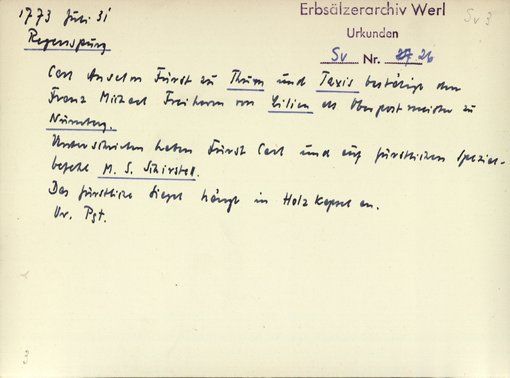 1773 Juli 31
Regenspurg
Erbsälzerarchiv Werl
Urkunden
Sv Nr. 26
Sv 3
Carl Anselm Fürst zu Thurn und Taxis bestätigt den
Franz Michael Freiherrn von Lilien als Oberpostmeister zu
Nürnberg.
Unterschrieben haben Fürst Carl und auf fürstlichen Spezial-
befehl M. S. Schirstel.
Das fürstliche Siegel hängt in Holzkapsel an.
Ur. Pgt.
3